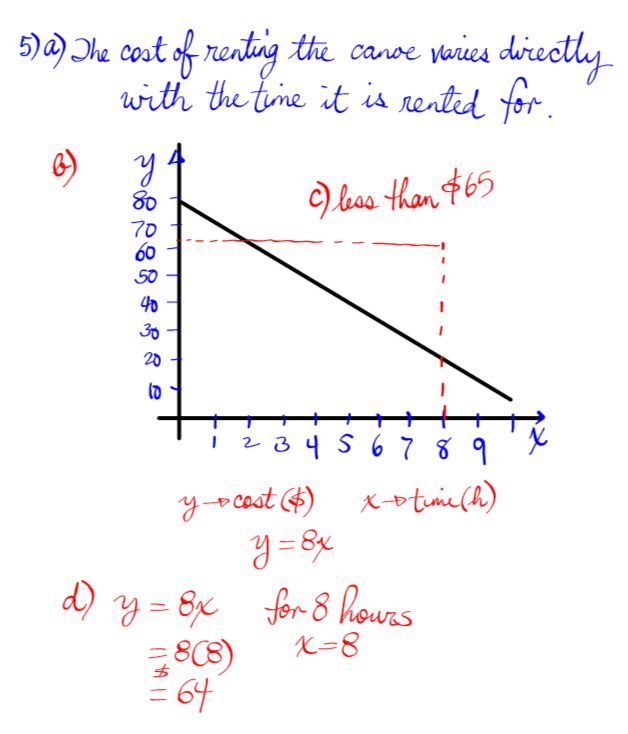 5) a) The cost of renting the canoe varies directly
with the time it is rented for.
b)
y
c) less than $65
80
70
60
50
40
30
20
10
1 2 3 4 5 6 7 8 9 x
y → cost ($) x → time (h)
y = 8x
d) y = 8x for 8 hours
= 8(8) x = 8
$
= 64